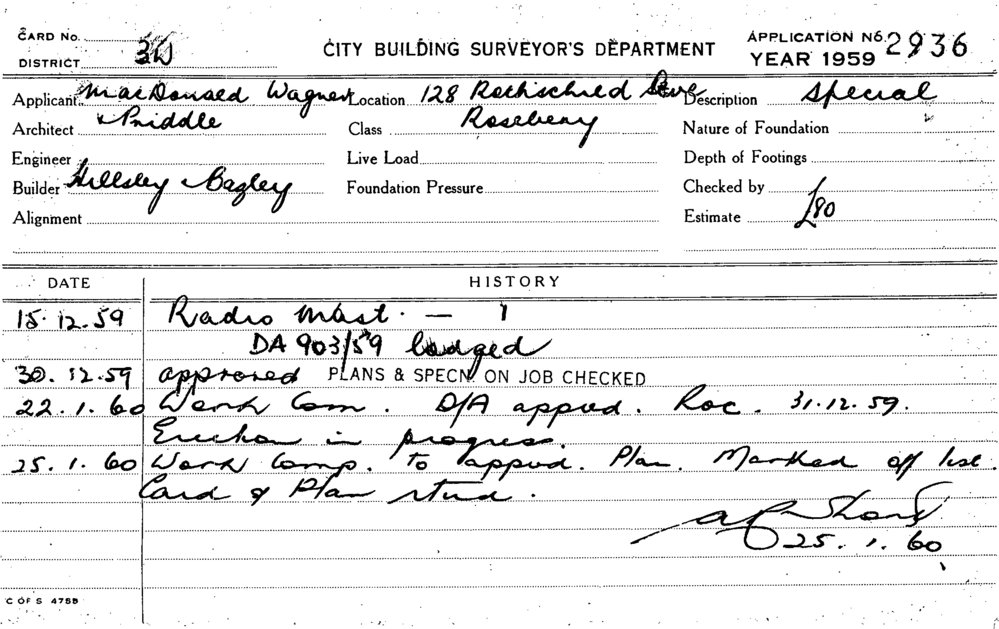 CARD No. CITY BUILDING SURVEYOR'S DEPARTMENT APPLICATION No. 2936
DISTRICT 3W YEAR 1959
Applicant MacDonald Wagner Location 128 Rothschild Ave Description Special
Architect & Priddle Class Rosebery Nature of Foundation
Engineer Live Load Depth of Footings
Builder Hillsley & Bagley Foundation Pressure Checked by
Alignment Estimate £80
DATE HISTORY
15.12.59 Radio Mast. — 1
DA 903/59 lodged
30.12.59 approved PLANS & SPECN. ON JOB CHECKED
22.1.60 Work Com. D/A appvd. Roc. 31.12.59.
Erection in progress.
25.1.60 Work Comp. to appvd. Plan. Marked off list.
Card & Plan rtnd.
25.1.60
C OF S 475B